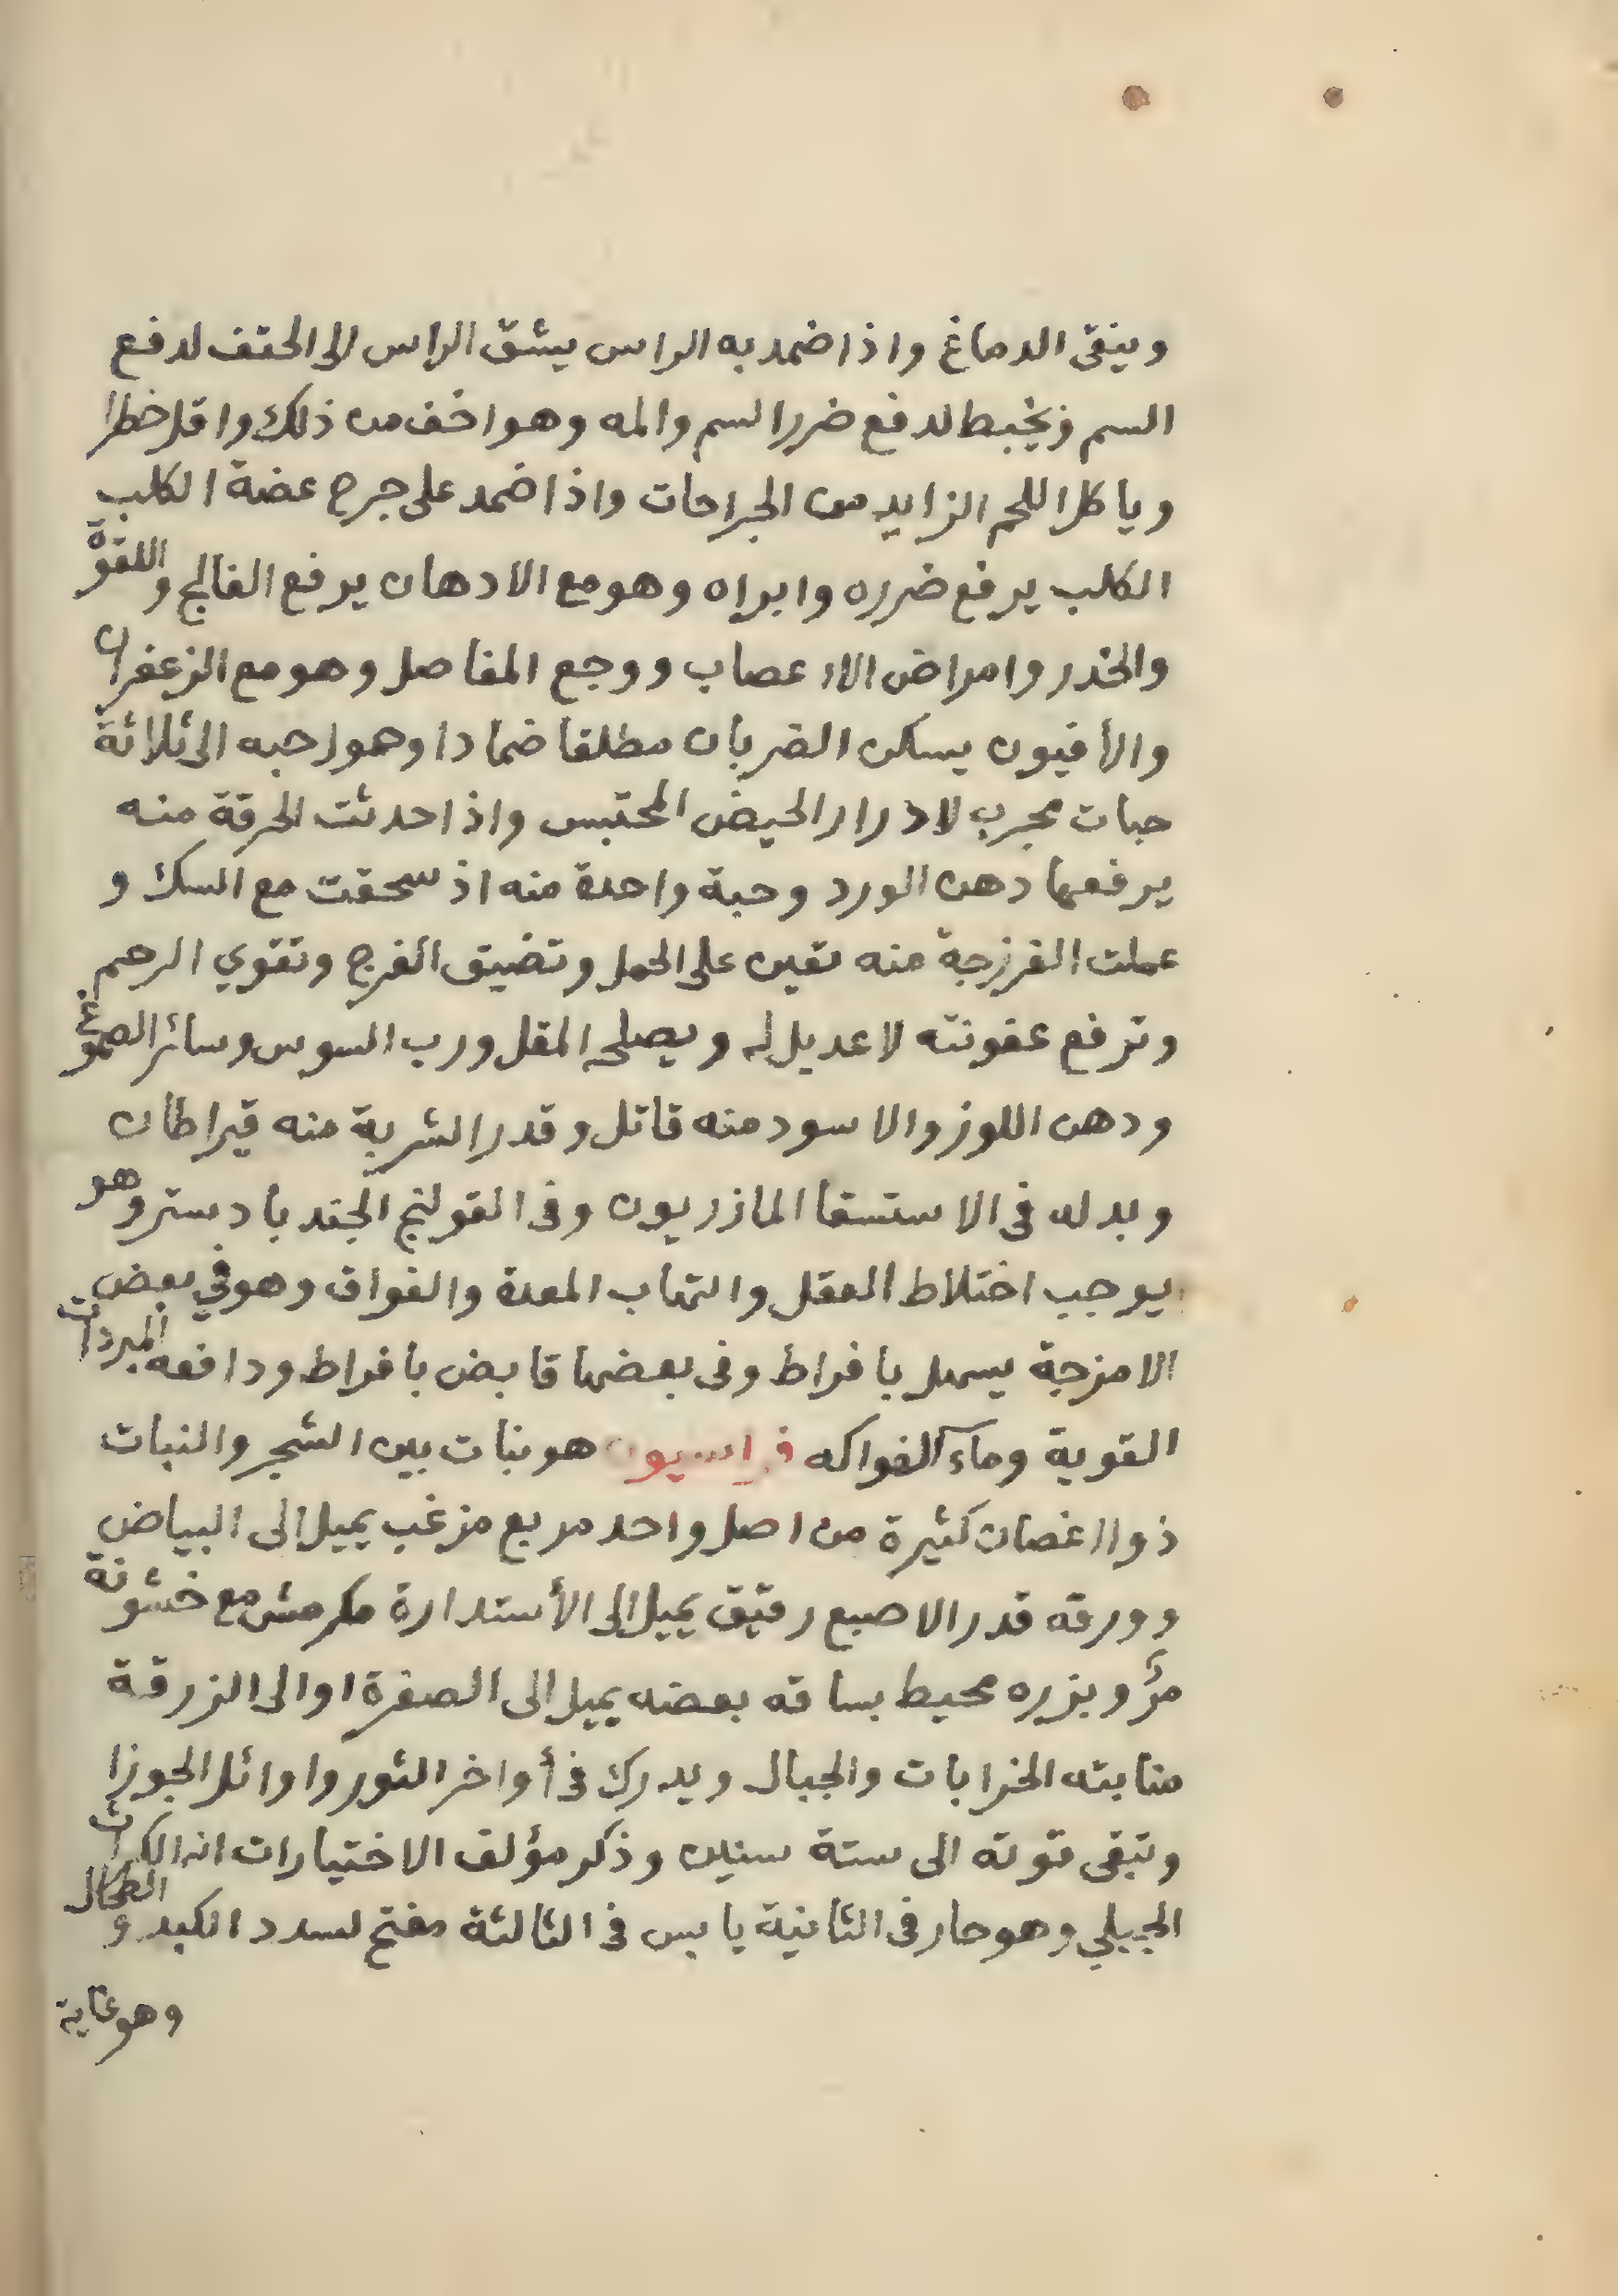 وينقى الدماغ واذا ضمد به الراس يشق الراس الى الحتف لدفع
السم ويخبط لدفع ضرر السم والمه وهو اخف من ذلك واقل خطرا
وياكل اللحم الزايد من الجراحات واذا ضمد على جرح عضة الكلب
الكلب يرفع ضرره وابراه وهو مع الادهان يرفع الفالج واللقوة
والخدر وامراض الاعصاب ووجع المفاصل وهو مع الزعفران
والأفيون يسكن الضربان مطلقا ضمادا وهو احبه الى ثلاثة
حبات مجرب لادرار الحيض المحتبس واذا حدثت الحرقة منه
يرفعها دهن الورد وحبة واحدة منه اذ سحقت مع السك و
عملت الفرزجة منه تعين على الحمل وتضيق الفرج وتقوي الرحم
وترفع عفونته لا عديل له ويصلحه المقل ورب السوس وسائر الصموغ
ودهن اللوز والاسود منه قاتل وقدر الشربة منه قيراطان
وبدله فى الاستسقا المازريون وفى القولنج الجند بادستر وهو
يوجب اختلاط العقل والتهاب المعدة والفواق وهو في بعض
الامزجة يسهل بافراط وفى بعضها قابض بافراط ودافعه المبردات
القوية وماء الفواكه فراسيون هو نبات بين الشجر والنبات
ذوا اغصان كثيرة من اصل واحد مربع مزغب يميل الى البياض
وورقه قدر الاصبع رقيق يميل الى الأستدارة مكرمش مع خشونة
مرّ وبزره محيط بساقه بعضه يميل الى الصفرة او الى الزرقة
منابته الخرابات والجبال ويدرك فى أواخر الثور واوائل الجوزا
وتبقى قوته الى ستة سنين وذكر مؤلف الاختيارات انه الكراث
الجبيلي وهو حار فى الثانية يابس فى الثالثة مفتح لسدد الكبد والطحال
وهو غاية